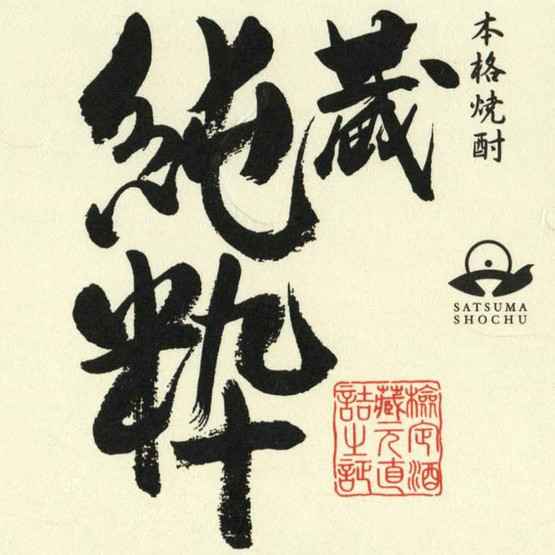 本格焼酎
蔵
純粋
SATSUMA
SHOCHU
検定酒
蔵元直
詰之証